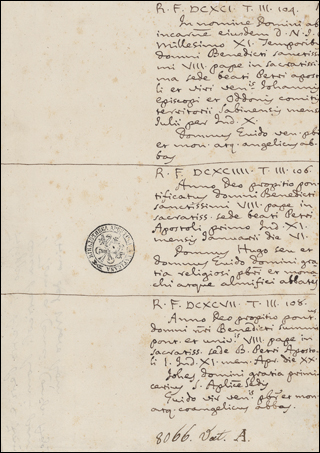 R. F. DCXCI. T. III. 104.
In nomine domini ab
incarne eiusdem D. N. I.
Millesimo XI. Temporib
domni Benedicti sanctiss
mi VIII. pape in sacratissi
ma sede beati Petri apost
li et viri ven. Iohannis
Episcopi et Oddonis comitis
territorii Sabinensis mens
Iulii per Ind. X.
Dommus Guido ven. pbr
et mon. atq. angelicus ab
bas
R. F. DCXCIIII. T. III. 106.
Anno deo propitio pon
tificatus domni Benedicti
sanctissimi VIII. pape in
sacratiss. sede beati Petri
Apostoli primo Ind. XI.
mensis Ianuarii die VI.
Dommus Hugo seu et
domnus Guido domini gra
tia religiosi pbri et mona
chi atque almifici abbates
R. F. DCXCVII. T. III. 108.
Anno deo propitio pont.
domni nri Benedicti summi
pont. et univ. VIII. pape in
sacratiss. sede B. Petri Aposto
li I. Ind. XI. men. Apr. die XX.
Iohes domini gratia primi
cerius S. Aplice Sedis
Guido vir ven. pbr et mon.
atq. evangelicus abbas.
8066. Vat. A.